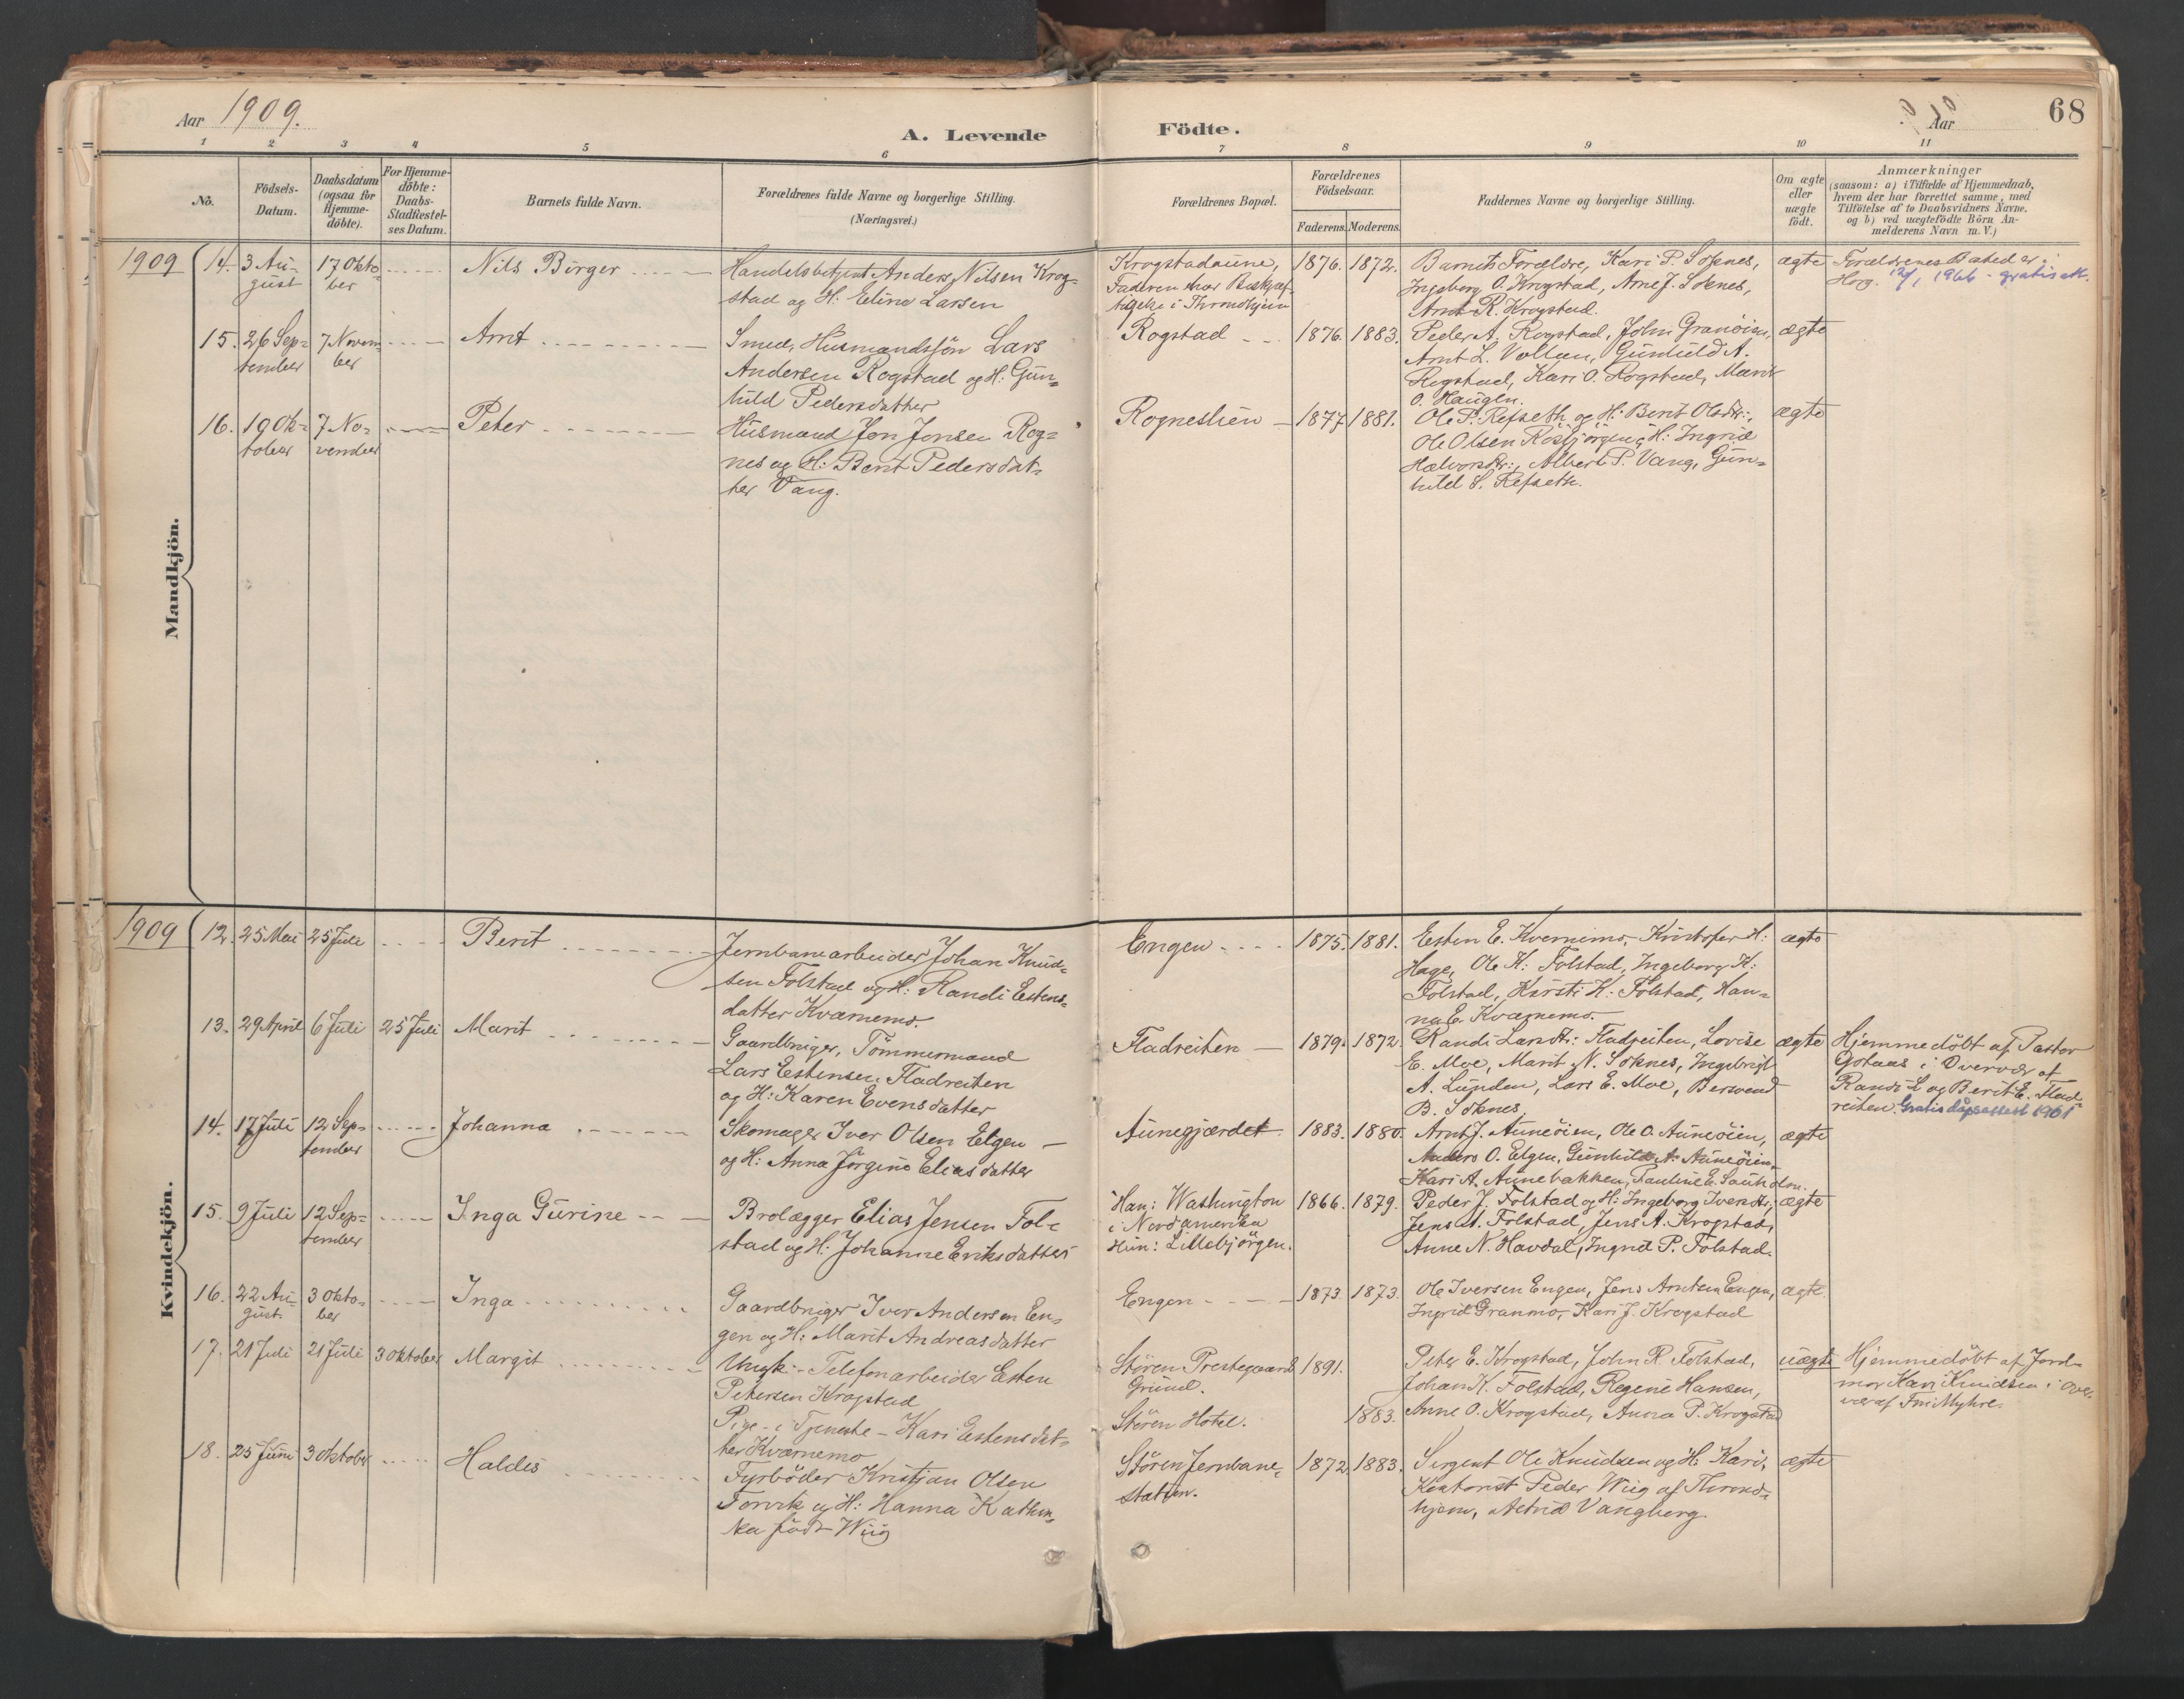 Aar 1909.
A. Levende Födte.
Aar
68
1 2 3 4 5 6 7 8 9 10 11
No.
Födsels-
Datum.
Daabsdatum
(ogsaa for
Hjemme-
döbte).
For Hjemme-
döbte:
Daabs-
Stadfæstel-
ses Datum.
Barnets fulde Navn.
Forældrenes fulde Navne og borgerlige Stilling.
(Næringsvei.)
Forældrenes Bopæl.
Forældrenes
Födselsaar.
Faderens. Moderens.
Faddernes Navne og borgerlige Stilling.
Om ægte
eller
uægte
födt.
Anmærkninger
(saasom: a) i Tilfælde af Hjemmedaab,
hvem der har forrettet samme, med
Tilföielse af to Daabsvidners Navne,
og b) ved uægtefödte Börn An-
melderens Navn m. V.)
Mandkjön.
1909
14.
3 Au-
gust
17 Okto-
ber
Nils Birger
Handelsbetjent Anders Nilsen Krog-
stad og H. Eline Larsen
Krogstadaune,
Faderen har Beskjæf-
tigelse i Throndhjem
1876. 1872.
Barnets Forældre, Kari P. Soknes,
Ingeborg O. Krogstad, Arne J. Soknes,
Arnt R. Krogstad.
ægte
Forældrenes Bosted er i
Horg. 12/1 1966 - gratis att.
15.
26 Sep-
tember
7 Novem-
ber
Arnt
Smed, Husmandssön Lars
Andersen Rogstad og H: Gun-
hild Pedersdatter
Rogstad
1876. 1883.
Peder A. Rogstad, John Granöien,
Arnt L. Vollan, Gunhild A.
Rogstad, Kari O. Rogstad, Marit
O. Haugen.
ægte
16.
19 Ok-
tober
7 No-
vember
Peter
Husmand Jon Jonsen Rog-
nes og H: Berit Pedersdat-
ter Vang.
Rogneslien
1877. 1881.
Ole P. Refseth og H: Berit Olsdtr:,
Ole Olsen Rosbjörgen, H: Ingrid
Halvorsdtr:, Albert P. Vang, Gun-
hild S. Refseth.
ægte
Kvindekjön.
1909
12.
25 Mai
25 Juli
Berit
Jernbanearbeider Johan Knud-
sen Folstad og H: Randi Estens-
datter Kværnemo.
Engen
1875. 1881.
Esten E. Kvernemo, Kristofer H:
Hage, Ole K: Folstad, Ingeborg K:
Folstad, Kirsti K: Folstad, Han-
na E. Kværnemo.
ægte
13.
29 April
6 Juli
25 Juli
Marit
Gaardbruger, Tömmermand
Lars Estensen Fladreiten
og H: Karen Evensdatter
Fladreiten
1879. 1872.
Randi Larsdtr: Fladreiten, Lovise
E. Moe, Marit N. Soknes, Ingebrigt
A. Lunden, Lars E. Moe, Bersvend
B. Soknes.
ægte
Hjemmedöbt af Pastor
Götaas i Overvær af
Randi L og Berit E. Flad-
reiten. Gratis dåpsattest 1961
14.
17 Juli
12 Sep-
tember
Johanna
Skomager Iver Olsen Elgen
og H: Anna Jörgine Eliasdatter
Aunegjærdet
1883. 1880.
Arnt J. Auneöien, Ole O. Auneöien,
Anders O. Elgen, Gunhild A: Auneöien,
Kari A. Aunebakken, Pauline E. Sandodden.
ægte
15.
9 Juli
12 Sep-
tember
Inga Gurine
Brolægger Elias Jensen Fol-
stad og H: Johanne Eriksdatter
Han: Washington
i Nordamerika
Hun: Lillebjörgen.
1866. 1879.
Peder J. Folstad og H: Ingeborg Iversdtr;
Jens M. Folstad, Jens A. Krogstad,
Anne N. Havdal, Ingrid P. Folstad.
ægte
16.
22 Au-
gust.
3 Okto-
ber
Inga
Gaardbruger Iver Andersen En-
gen og H: Marit Andreasdatter
Engen
1873. 1873.
Ole Iversen Engen, Jens Arntsen Engen,
Ingrid Granmo, Kari J. Krogstad
ægte.
17.
21 Juli
21 Juli
3 Oktober
Margit
Ungk: - Telefonarbeider Esten
Petersen Krogstad
Pige - i Tjeneste - Kari Estensdat-
ter Kværnemo
Stören Prestegaards
Grund.
Stören Hotel.
1891.
1883.
Peter E. Krogstad, John R. Folstad,
Johan K. Folstad, Regine Hansen,
Anne O. Krogstad, Anna P. Krogstad
uægte
Hjemmedöbt af Jord-
mor Kari Knudsen i Over-
vær af Fru Myhre.
18.
25 Juni
3 Oktober
Haldis
Fyrböder Kristian Olsen
Torvik og H: Hanna Kathin-
ka född Wiig
Stören Jernbane-
station.
1872. 1883.
Sergent Ole Knudsen og H. Kari,
Kontorist Peder Wiig af Thrond-
hjem, Astrid Vangberg.
ægte